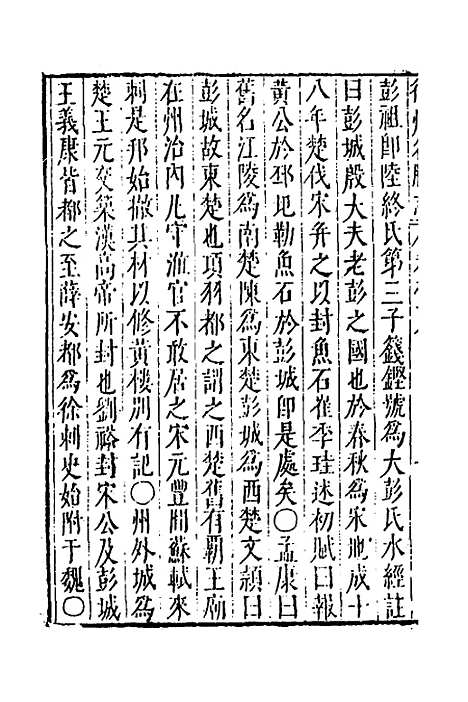 彭祖即陸終氏第三子籛鏗號為大彭氏水經註
曰彭城殷大夫老彭之國也於春秋為宋地成十
八年楚伐宋并之以封魚石崔季珪述初賦曰報
黃公於邳圯勒魚石於彭城即是處矣〇孟康曰
舊名江陵為南楚陳為東楚彭城為西楚文頴曰
彭城故東楚也項羽都之謂之西楚舊有霸王廟
在州治內凡守淮官不敢居之宋元豐間蘇軾來
刺是邦始撤其材以修黃樓別有記〇州外城為
楚王元交築漢高帝所封也劉裕封宋公及彭城
王義康皆都之至薛安都為徐刺史始附于魏〇